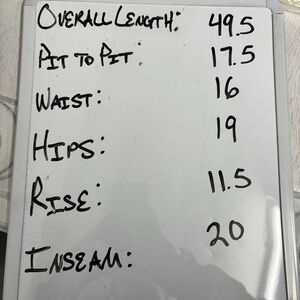 OVERALL LENGTH: 49.5
PIT TO PIT: 17.5
WAIST: 16
HIPS: 19
RISE: 11.5
INSEAM: 20